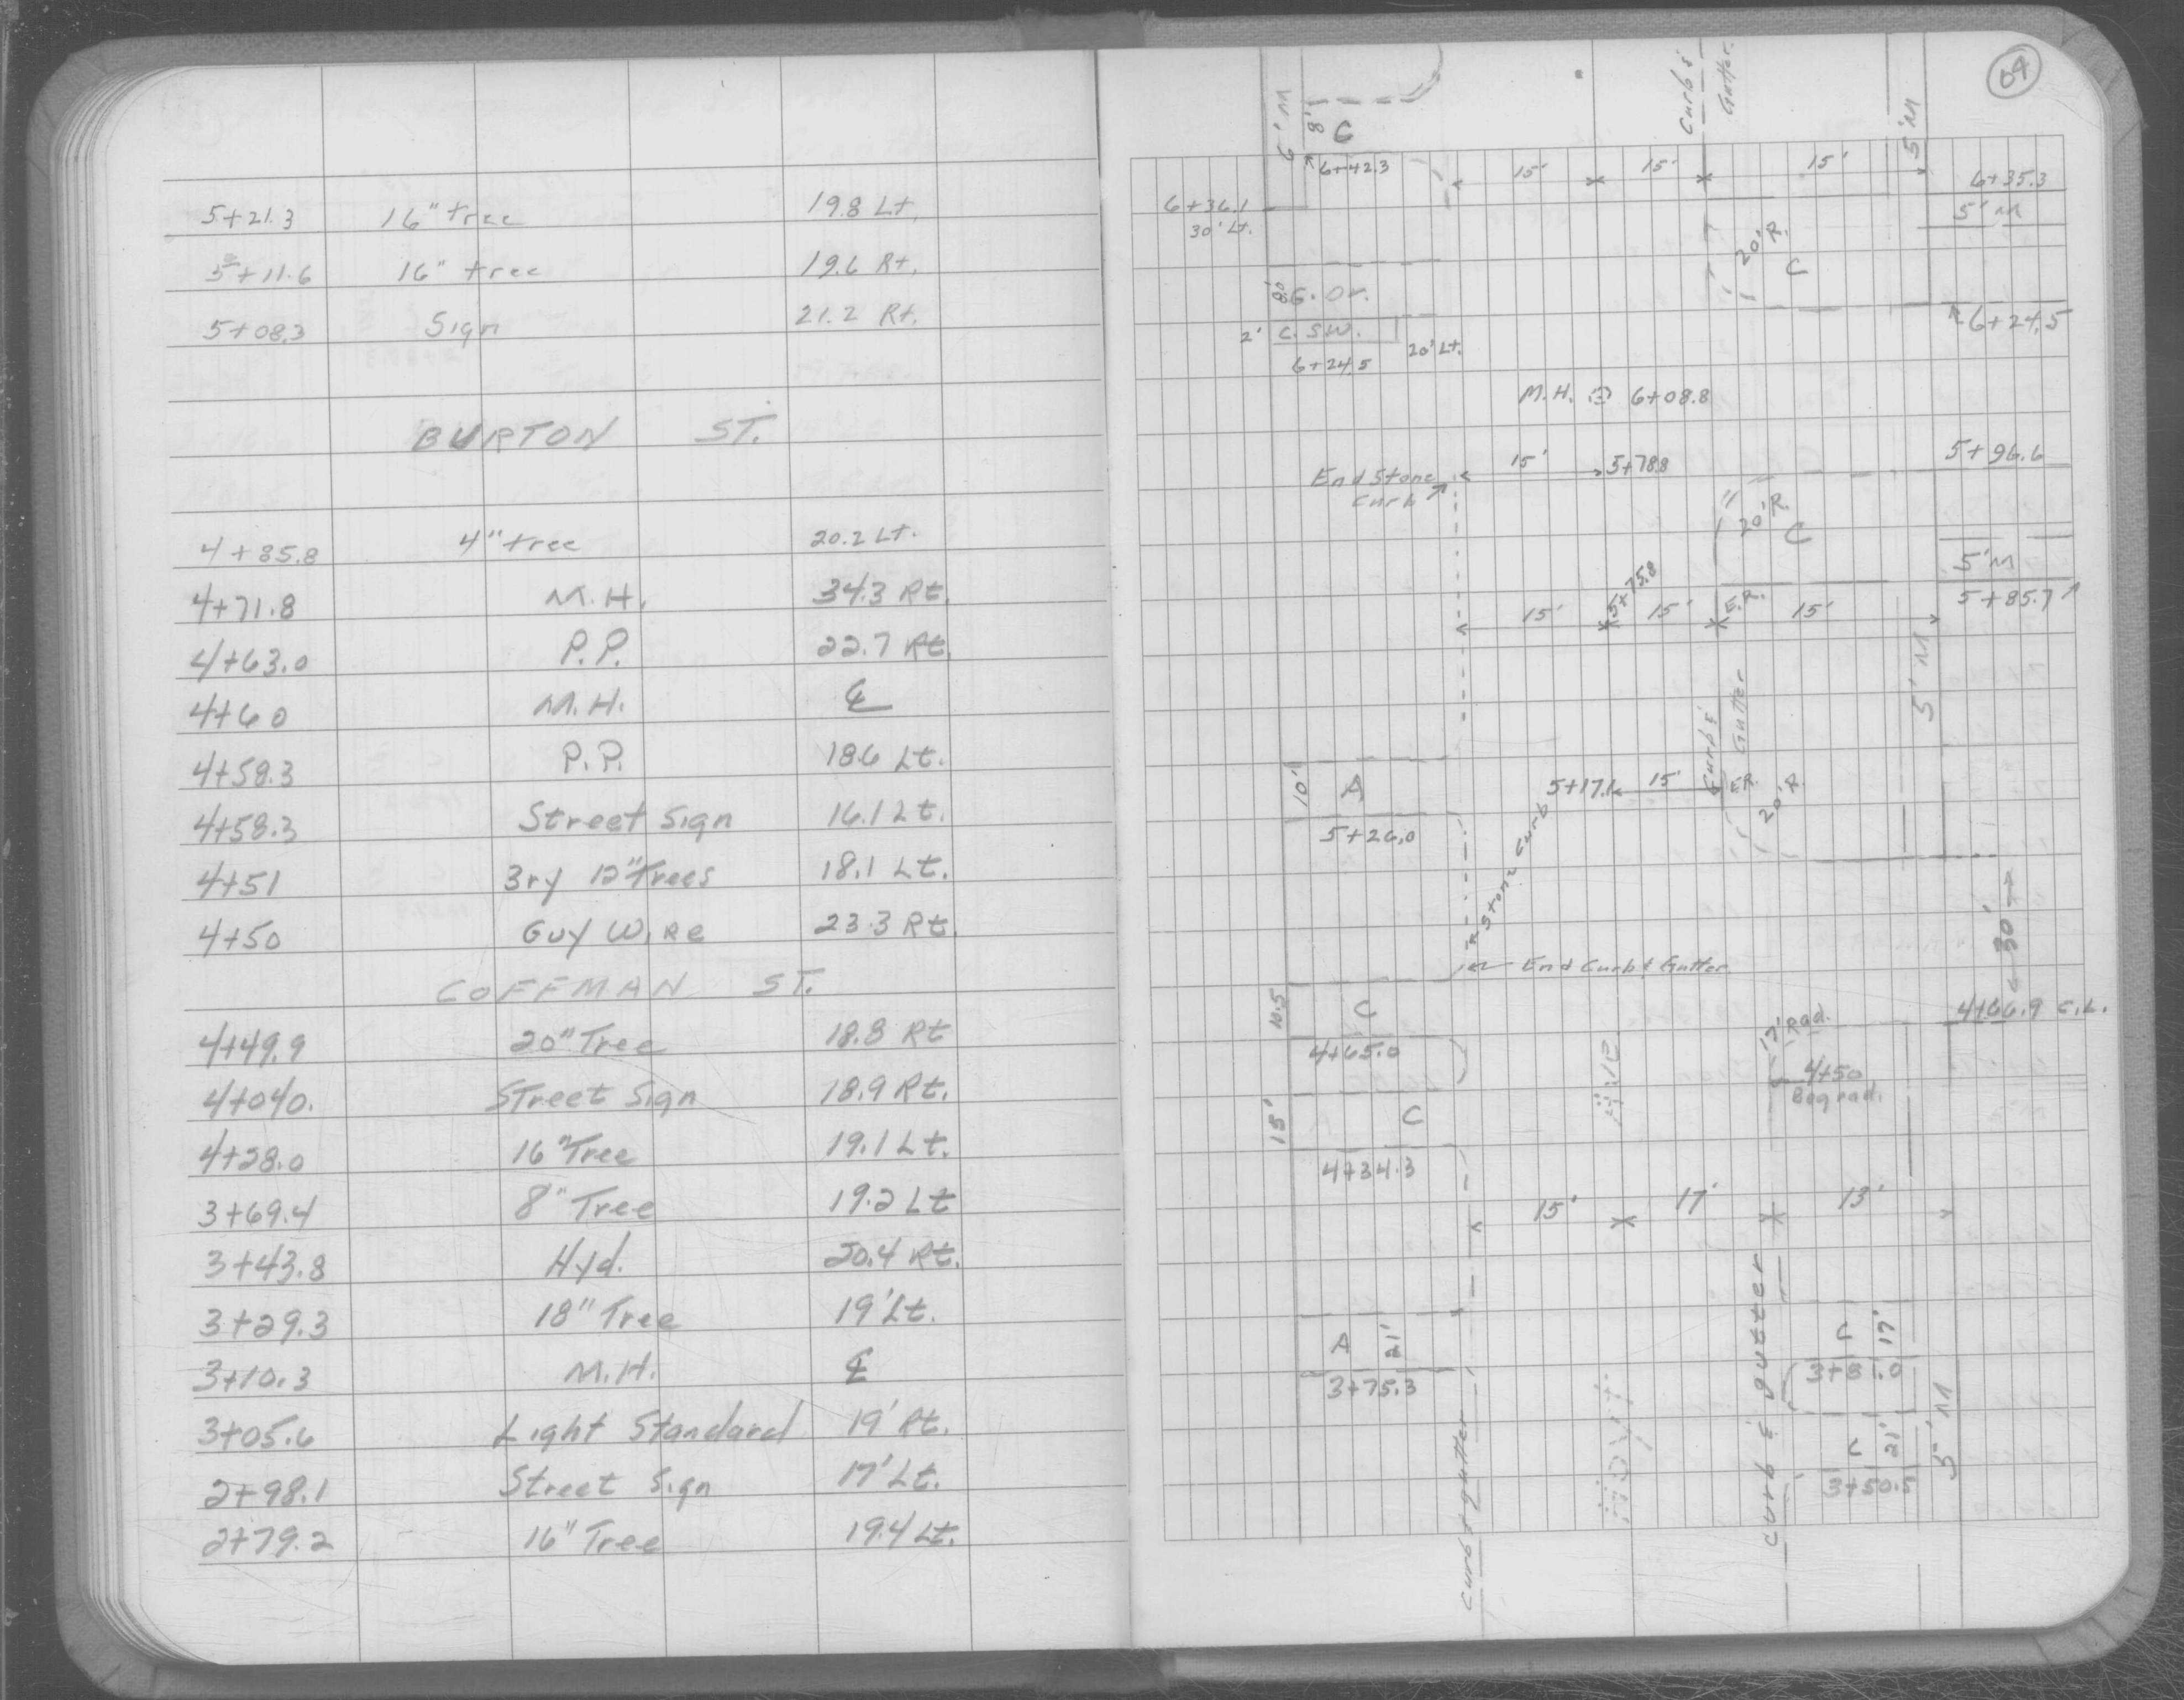 5+21.3 16" tree 19.8 Lt.
5+11.6 16" tree 19.6 Rt.
5+08.3 Sign 21.2 Rt.
BURTON ST.
4+85.8 4" tree 20.2 Lt.
4+71.8 M.H. 34.3 Rt.
4+63.0 P.P. 22.7 Rt.
4+60 M.H. ℄
4+58.3 P.P. 18.6 Lt.
4+58.3 Street Sign 16.1 Lt.
4+51 3ry 12" Trees 18.1 Lt.
4+50 Guy Wire 23.3 Rt.
COFFMAN ST.
4+49.9 20" Tree 18.8 Rt
4+040. Street Sign 18.9 Rt.
4+28.0 16" Tree 19.1 Lt.
3+69.4 8" Tree 19.2 Lt
3+43.8 Hyd. 20.4 Rt.
3+29.3 18" Tree 19' Lt.
3+10.3 M.H. ℄
3+05.6 Light Standard 19' Rt.
2+98.1 Street Sign 17' Lt.
2+79.2 16" Tree 19.4 Lt.
04
6' M 8' C Curb & Gutter 5' M
6+42.3 15' 15' 15' 6+35.3
6+36.1 5' M
30' Lt.
20' R. C
8.0' G. Dr.
2' C. SW. 6+24.5
6+24.5 20' Lt.
M.H. 6+08.8
End Stone Curb 15' 5+78.8 5+96.6
20' R. C
5' M
5+75.8 5+85.7
15' 15' E.R. 15'
Curb & Gutter 5' M
10' A 5+17.1 15' E.R. 20' R.
5+26.0 Stone Curb
30'
End Curb & Gutter
10.5 C 4+66.9 C.L.
4+65.0 Rad.
4+50
Beg rad.
15' C
4+34.3
15' 17' 13'
A 21' C 17'
3+75.3 3+81.0
Curb & gutter Curb & gutter C 21' 5' M
3+50.5